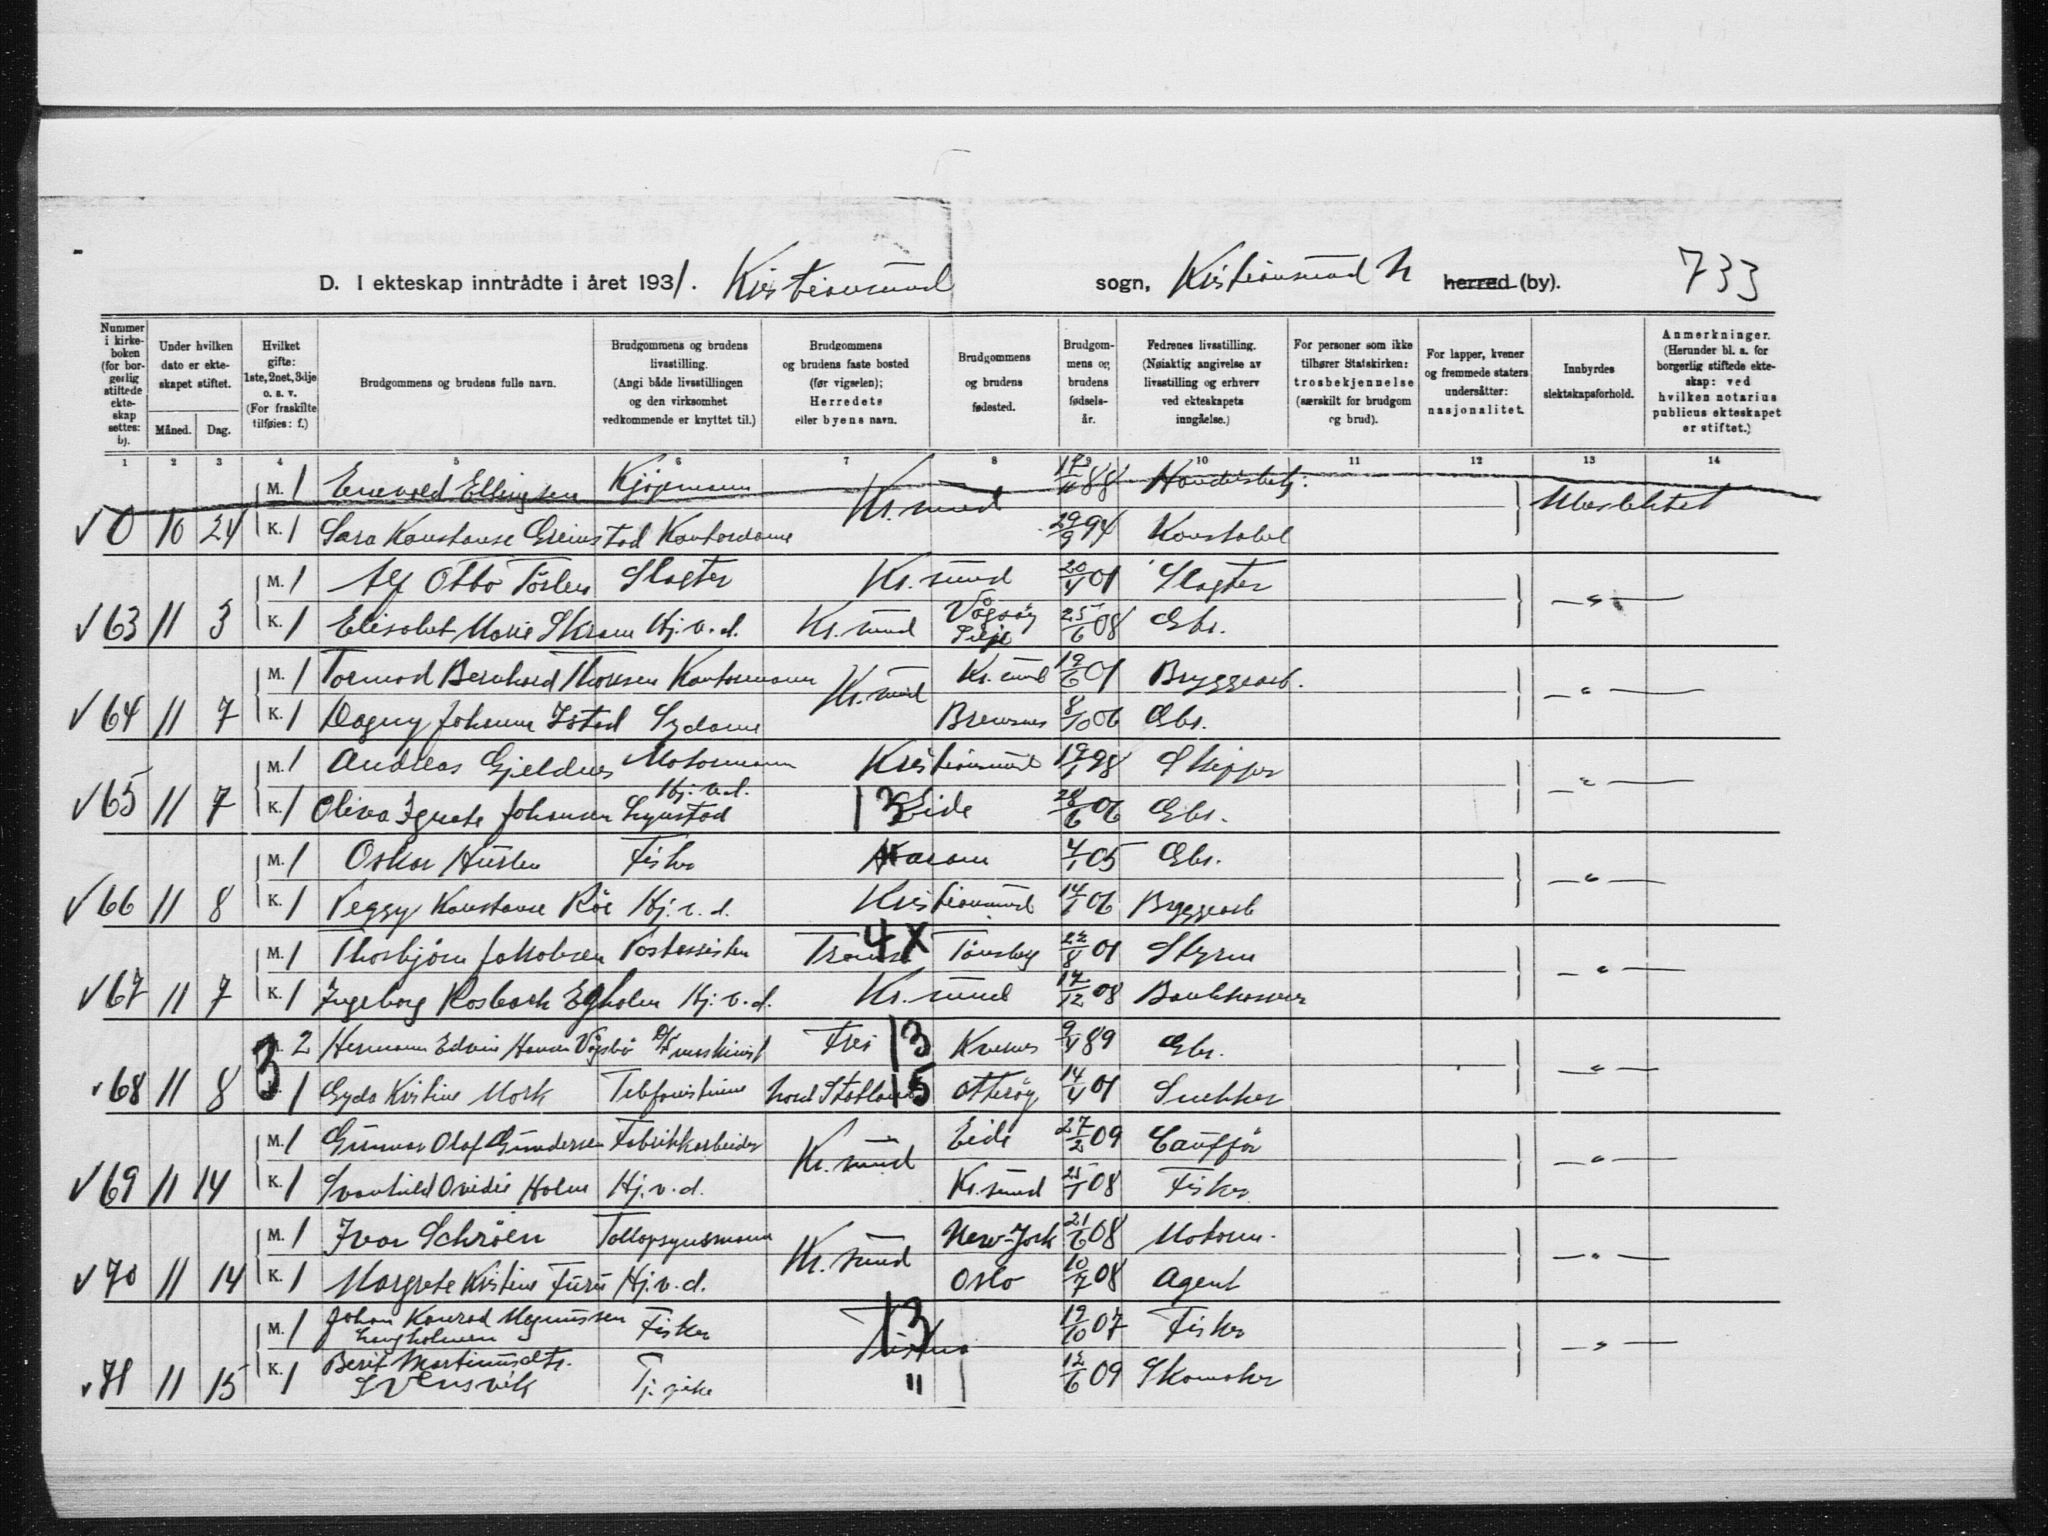 D. I ekteskap inntrådte i året 1931. Kristiansund sogn, Kristiansund N herred (by). 733
Nummer i kirke-boken (for bor-gerlig stiftede ekte-skap settes: b).
Under hvilken dato er ekte-skapet stiftet. Måned. Dag.
Hvilket gifte: 1ste, 2net, 3dje o. s. v. (For fraskilte tilføies: f.)
Brudgommens og brudens fulle navn.
Brudgommens og brudens livsstilling. (Angi både livsstillingen og den virksomhet vedkommende er knyttet til.)
Brudgommens og brudens faste bosted (før vigselen); Herredets eller byens navn.
Brudgommens og brudens fødested.
Brudgom-mens og brudens fødsels-år.
Fedrenes livsstilling. (Nøiaktig angivelse av livsstilling og erhverv ved ekteskapets inngåelse.)
For personer som ikke tilhører Statskirken: trosbekjennelse (særskilt for brudgom og brud).
For lapper, kvener og fremmede staters undersåtter: nasjonalitet.
Innbyrdes slektskapsforhold.
Anmerkninger. (Herunder bl. a. for borgerlig stiftede ekte-skap: ved hvilken notarius publicus ekteskapet er stiftet.)
1 2 3 4 5 6 7 8 9 10 11 12 13 14
M. 1 Enevold Ellingsen Kjøpmann Kr.sund 17/11 88 Handelsbetj. Ubeslektet
√ 0 10 24 K. 1 Sara Konstanse Grimstad Kontordame 29/9 94 Konstabel
M. 1 Alf Otto Slagter Kr.sund 20/4 01 Slagter — " —
√ 63 11 3 K. 1 Elisabet Marie Skram Hj.v.d. Kr.sund Vågsøy Silje 25/6 08 Gbr.
M. 1 Tormod Bernhard Thoresen Kontormann Kr.sund Kr.sund 19/6 01 Bryggearb. — " —
√ 64 11 7 K. 1 Dagny Johanne Istad Sydame Bremsnes 8/10 06 Gbr.
M. 1 Andreas Gjeldnes Motormann Kristiansund 19/1 98 Skipper — " —
√ 65 11 7 K. 1 Oliva Agnete Johansen Hj.v.d. 13 Eide 28/6 06 Gbr.
M. 1 Oskar Fisker Haram 4/1 05 Gbr. — " —
√ 66 11 8 K. 1 Peggy Konstanse Røe Hj.v.d. Kristiansund 14/1 06 Bryggearb
M. 1 Thorbjørn Jakobsen Postassistent Tromsø 4X Tønsberg 22/8 01 Styrm — " —
√ 67 11 7 K. 1 Ingeborg Rosbach Egholm Hj.v.d. Kr.sund 17/12 08 Bankkasserer
3 2 Hermann Edvin Hansen Vågsbø D/S maskinist Frei 13 Kvernes 9/4 89 Gbr. — " —
√ 68 11 8 1 Gyda Kristine Mork Telefonistinne 15 Otterøy 14/4 01 Snekker
M. 1 Gunnar Olaf Gundersen Fabrikkarbeider Kr.sund Eide 27/2 09 — " —
√ 69 11 14 K. 1 Svanhild Ovidie Holm Hj.v.d. Kr.sund 25/1 08 Fisker
M. 1 Ivar Schrøen Tollopsynsmann Kr.sund New-York 21/6 08 Motorm. — " —
√ 70 11 14 K. 1 Margrete Kristine Furu Hj.v.d. Oslo 10/7 08 Agent
M. 1 Johan Konrad Magnussen Langholmen Fisker 13 19/10 07 Fisker — " —
√ 71 11 15 K. 1 Berit Martinusdtr. Svensvik Tj.pike " 12/6 09 Skomaker